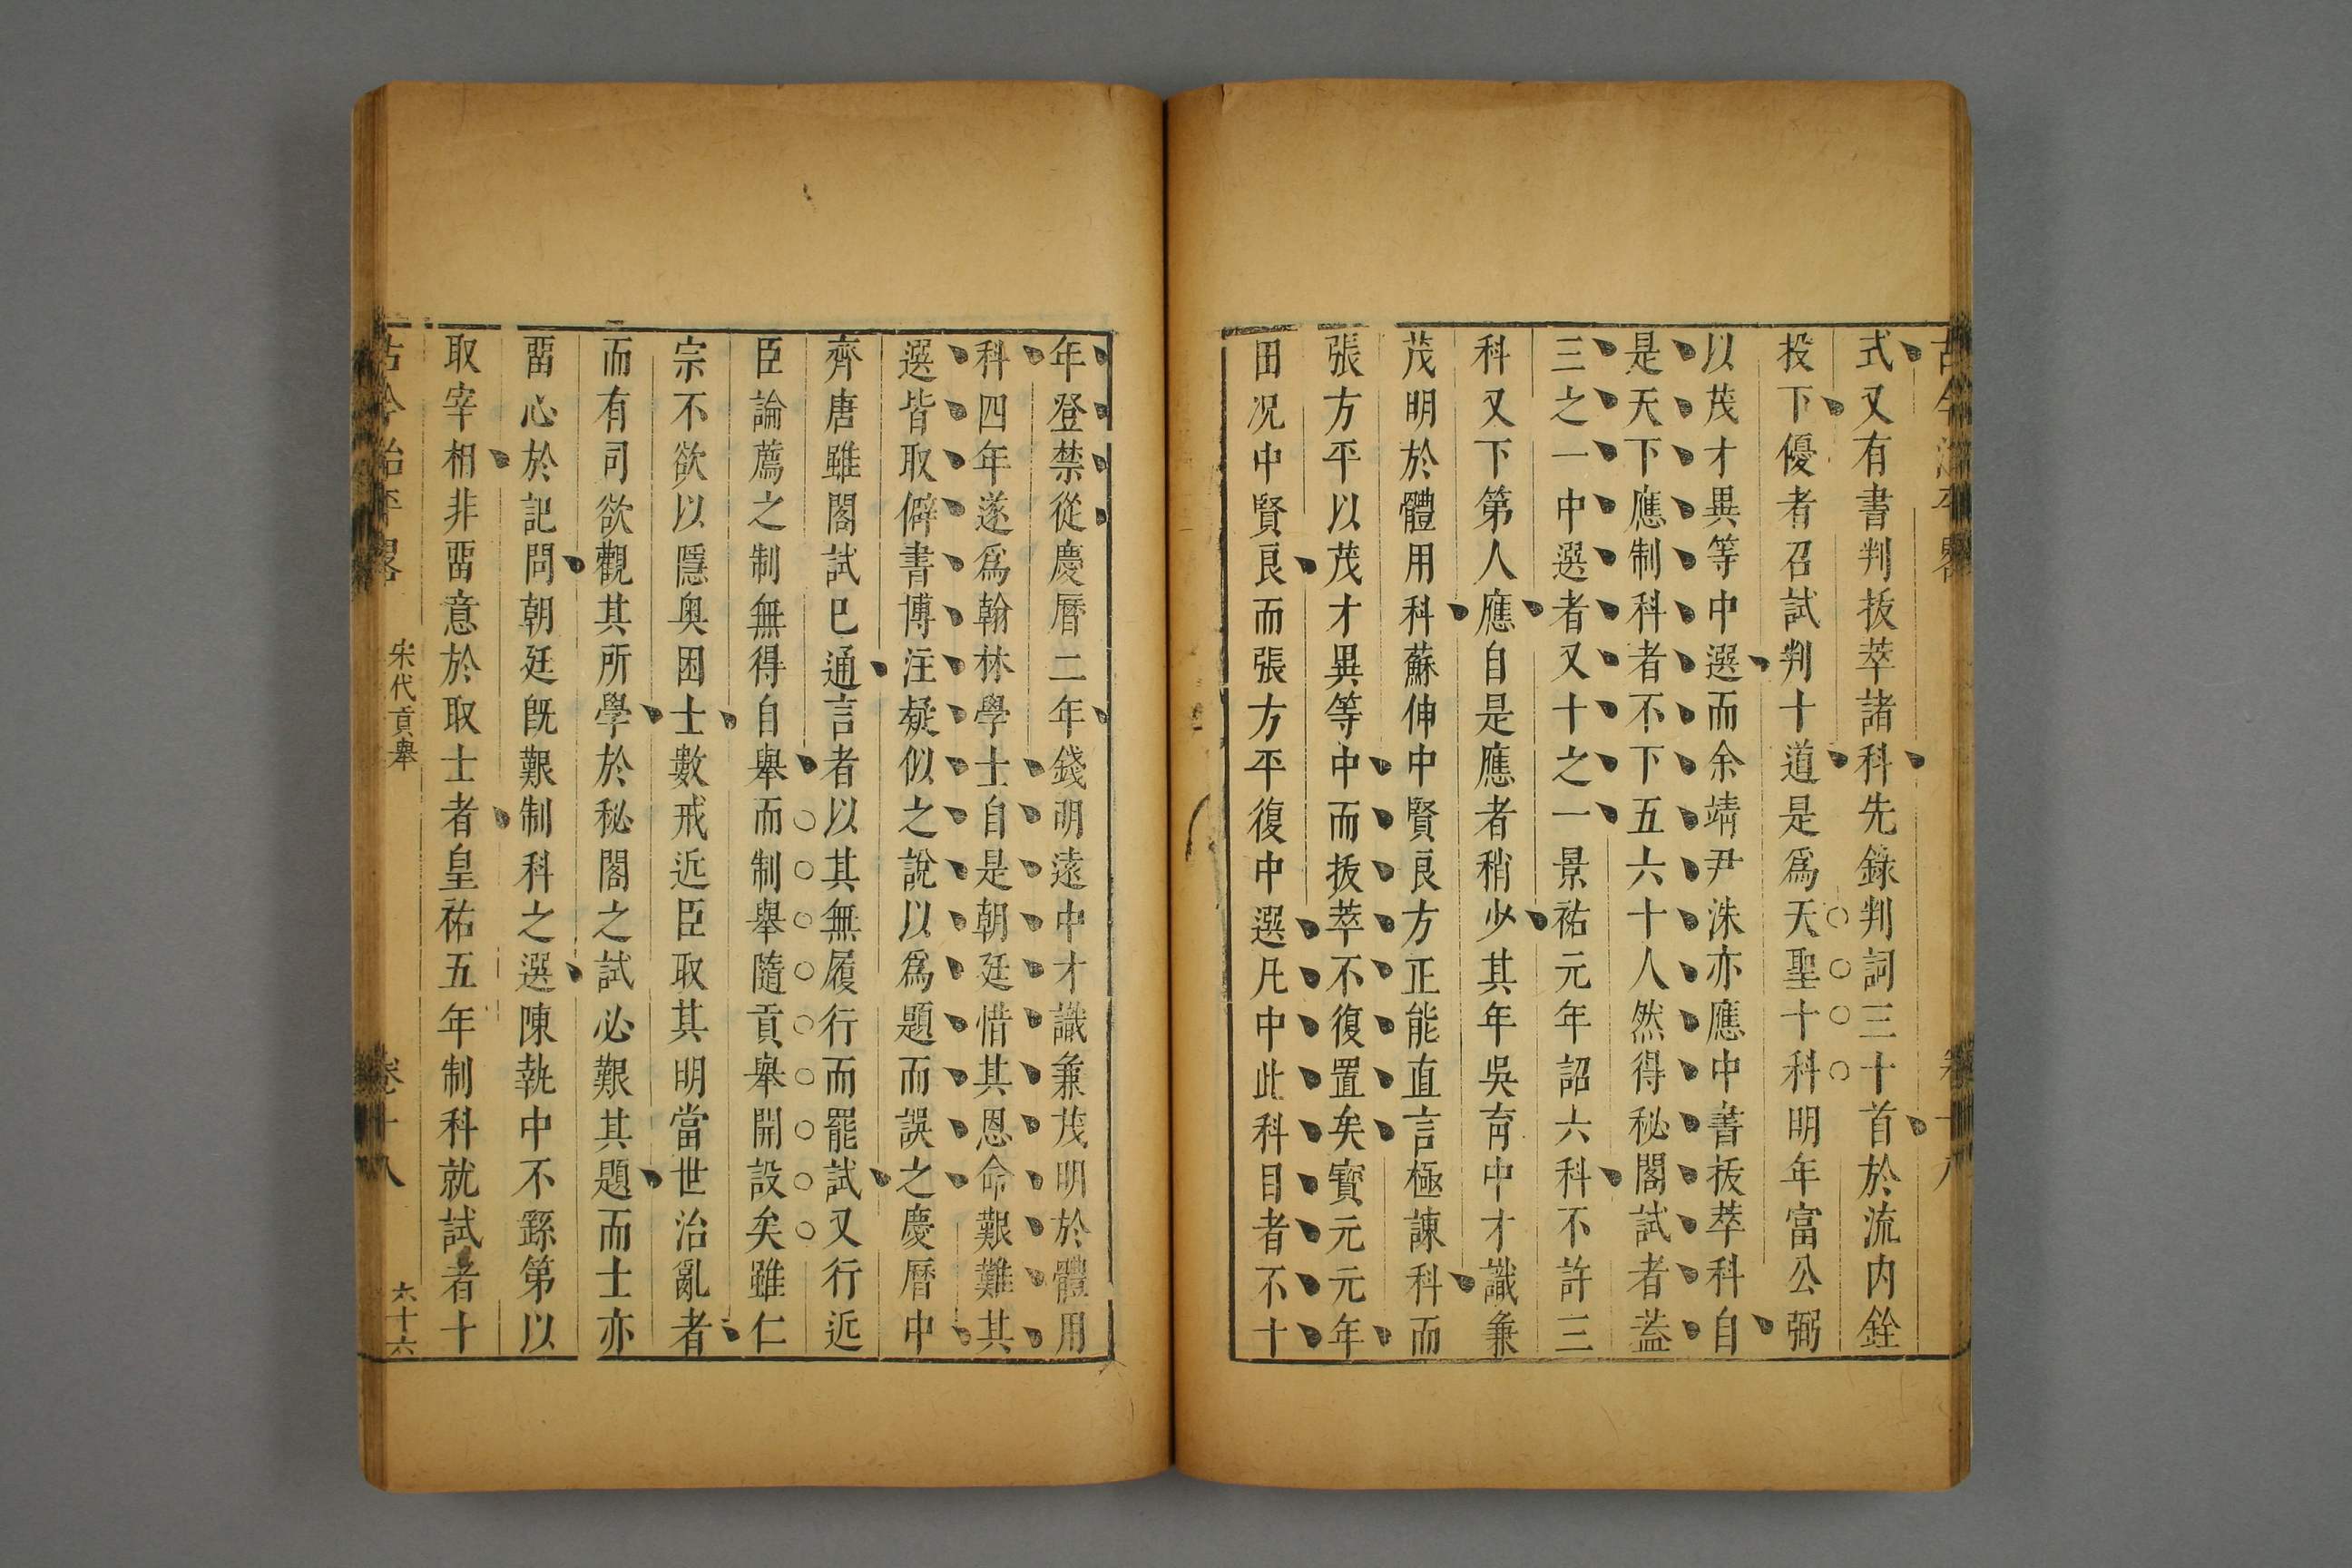 式又有書判拔萃諸科先錄判詞三十首於流内銓
投下優者召試判十道是爲天聖十科明年富公弼
以茂才異等中選而余靖尹洙亦應中書拔萃科自
是天下應制科者不下五六十人然得秘閣試者葢
三之一中選者又十之一景祐元年詔六科不許三
科又下第人應自是應者稍少其年吳育中才識兼
茂明於體用科蘇伸中賢良方正能直言極諫科而
張方平以茂才異等中而拔萃不復置矣寳元元年
田况中賢良而張方平復中選凡中此科目者不十
年登禁從慶曆二年錢明遠中才識兼茂明於體用
科四年遂爲翰林學士自是朝廷惜其恩命艱難其
選皆取僻書博注疑似之說以爲題而誤之慶曆中
齊唐雖閣試已通言者以其無履行而罷試又行近
臣論薦之制無得自舉而制舉隨貢舉開設矣雖仁
宗不欲以隱奥困士數戒近臣取其明當世治亂者
而有司欲觀其所學於秘閣之試必艱其題而士亦
畱心於記問朝廷旣艱制科之選陳執中不繇第以
取宰相非畱意於取士者皇祐五年制科就試者十
古今治平畧 宋代貢舉 卷十八 六十六